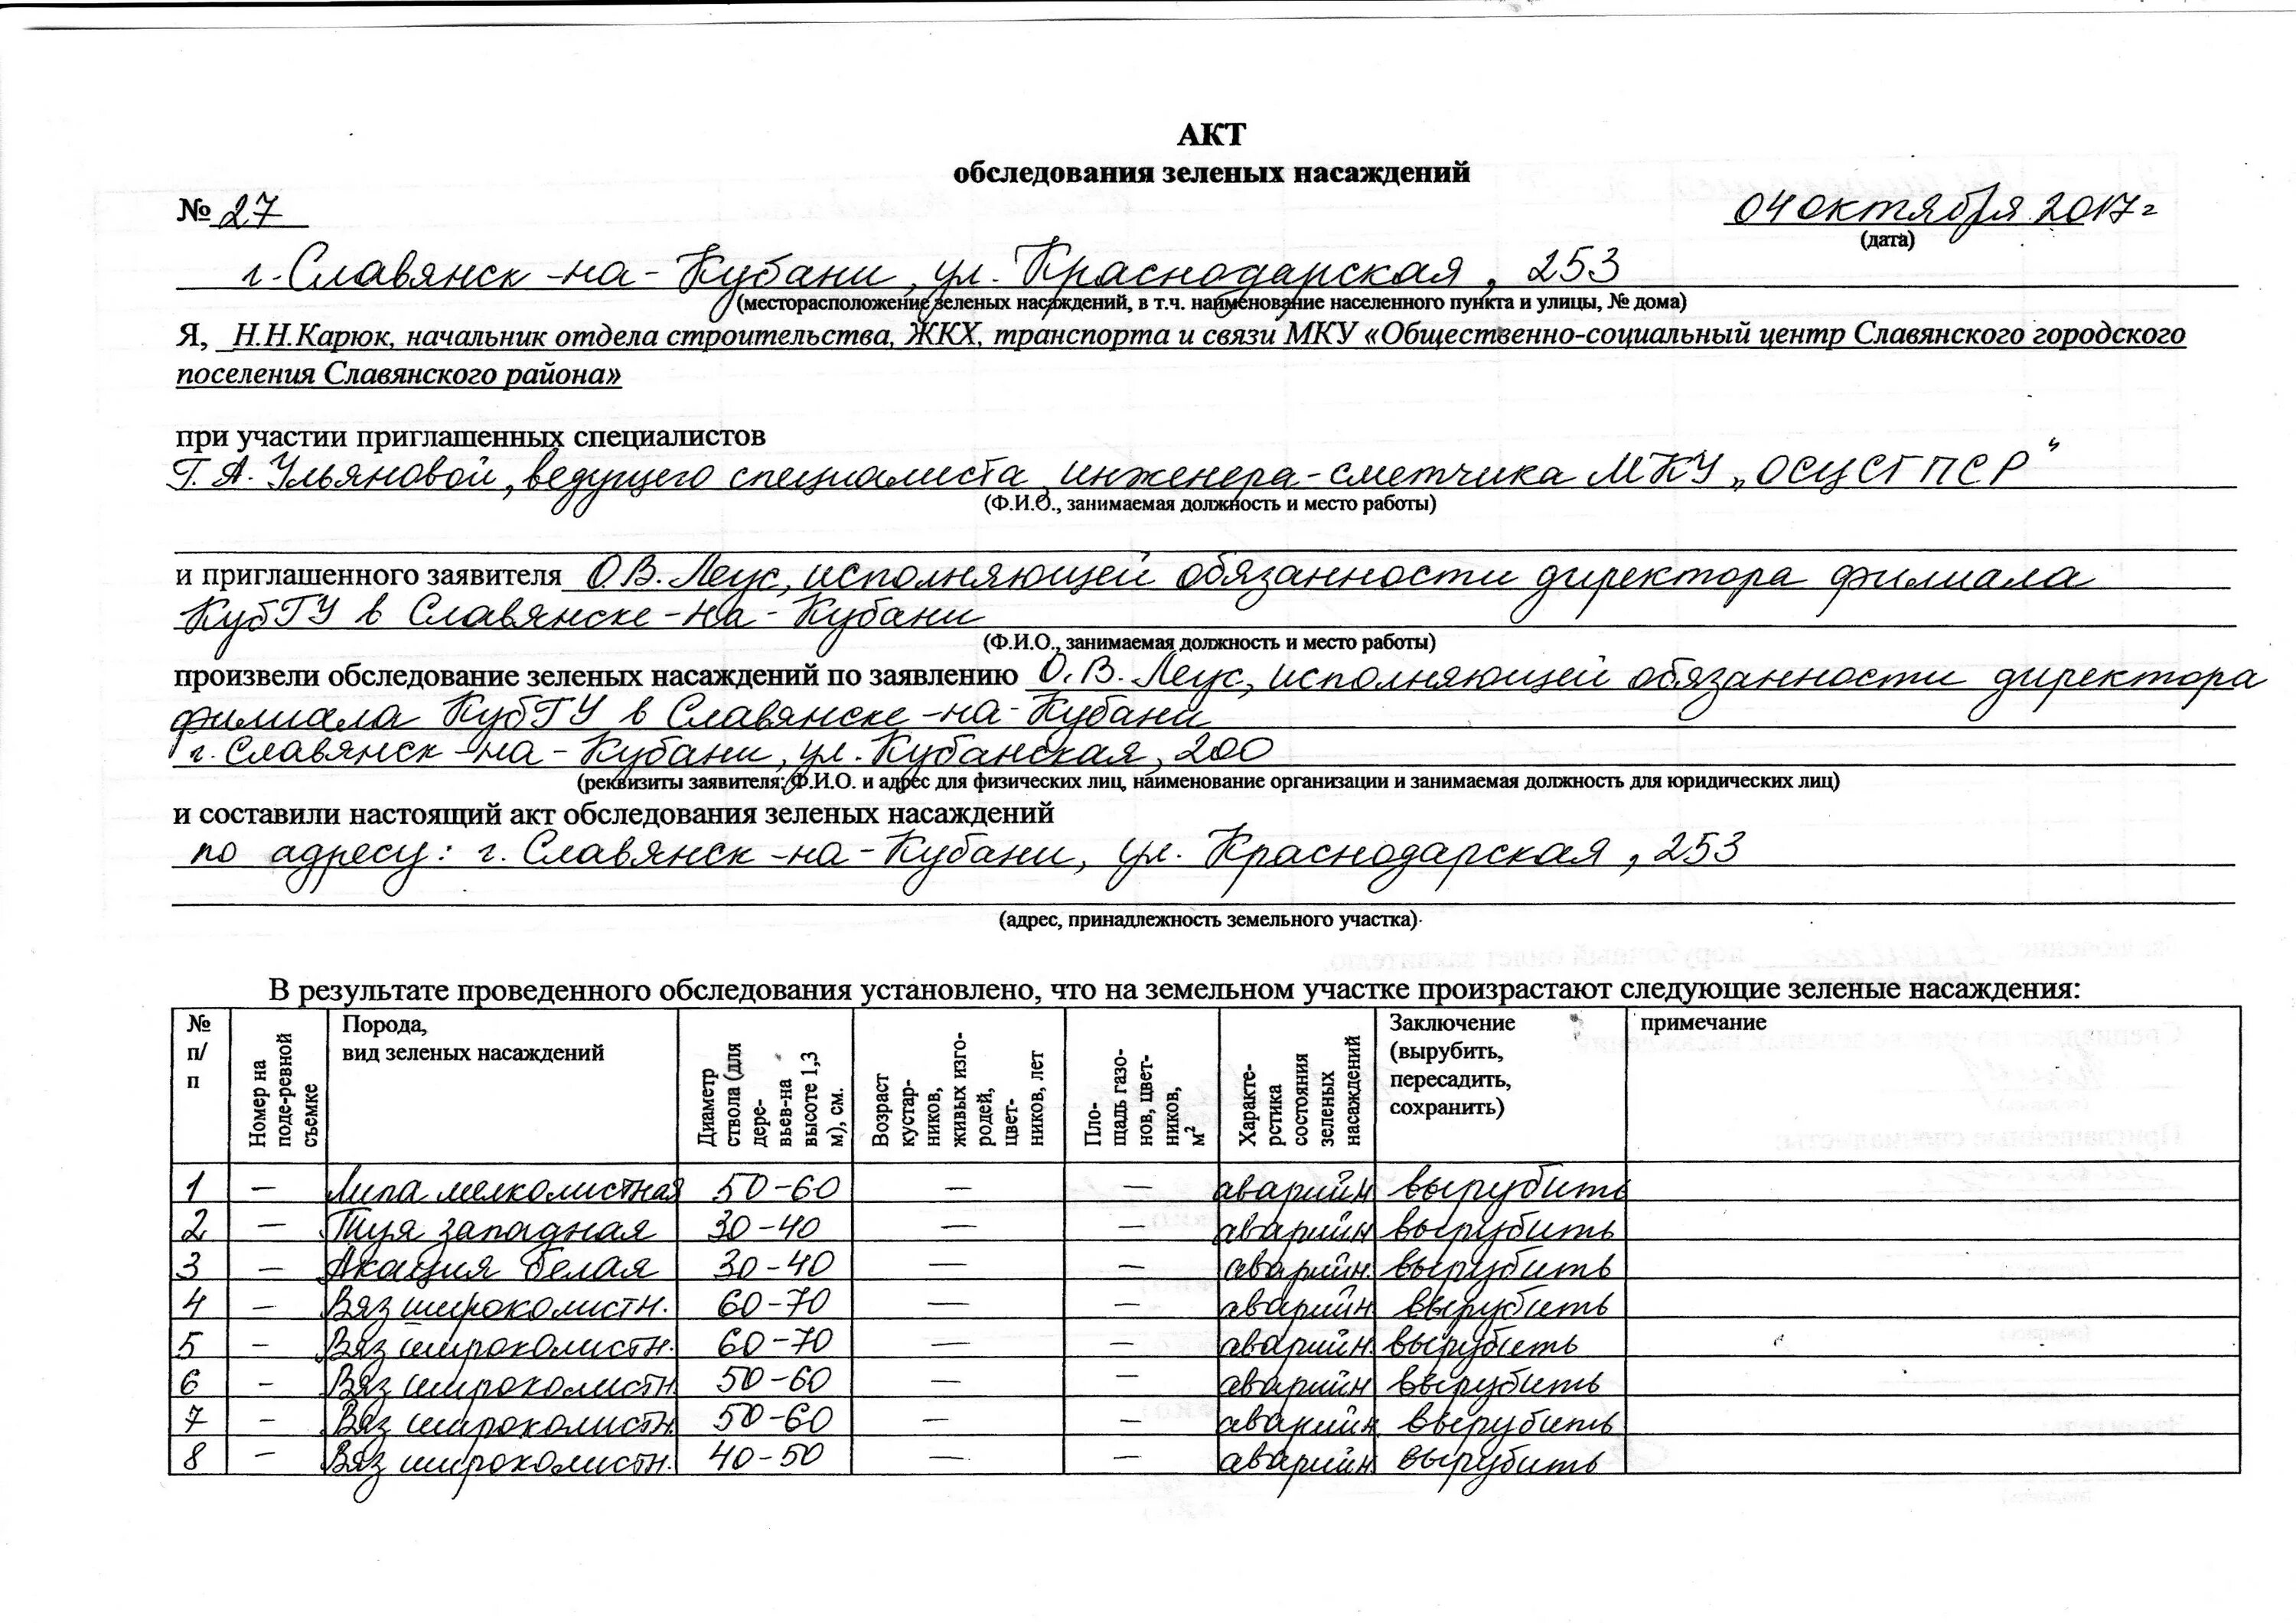 АКТ
обследования зеленых насаждений
№ 27 04 октября 2017 г
(дата)
г. Славянск-на-Кубани, ул. Краснодарская, 253
(месторасположение зеленых насаждений, в т.ч. наименование населенного пункта и улицы, № дома)
Я, Н.Н.Карюк, начальник отдела строительства, ЖКХ, транспорта и связи МКУ «Общественно-социальный центр Славянского городского
поселения Славянского района»
при участии приглашенных специалистов
Г. А. Ульяновой, ведущего специалиста, инженера-сметчика МКУ „ОСЦСГПСР"
(Ф.И.О., занимаемая должность и место работы)
и приглашенного заявителя О.В. Леус, исполняющей обязанности директора филиала
КубГУ в Славянске-на-Кубани
(Ф.И.О., занимаемая должность и место работы)
произвели обследование зеленых насаждений по заявлению О.В. Леус, исполняющей обязанности директора
филиала КубГУ в Славянске-на-Кубани
г. Славянск-на-Кубани, ул. Кубанская, 200
(реквизиты заявителя: Ф.И.О. и адрес для физических лиц, наименование организации и занимаемая должность для юридических лиц)
и составили настоящий акт обследования зеленых насаждений
по адресу: г. Славянск-на-Кубани, ул. Краснодарская, 253
(адрес, принадлежность земельного участка)
В результате проведенного обследования установлено, что на земельном участке произрастают следующие зеленые насаждения:
№ п/п
Номер на поде-ревной съемке
Порода,
вид зеленых насаждений
Диаметр ствола (для дере-вьев-на высоте 1,3 м), см.
Возраст кустар-ников, живых изго-родей, цвет-ников, лет
Пло-щадь газо-нов, цвет-ников, м²
Характе-рстика состояния зеленых насаждений
Заключение
(вырубить,
пересадить,
сохранить)
примечание
1 — Липа мелколистная 50-60 — — аварийн вырубить
2 — Туя западная 30-40 — — аварийн вырубить
3 — Акация белая 30-40 — — аварийн. вырубить
4 — Вяз широколистн. 60-70 — — аварийн. вырубить
5 — Вяз широколистн. 60-70 — — аварийн. вырубить
6 — Вяз широколистн. 50-60 — — аварийн вырубить
7 — Вяз широколистн. 50-60 — — аварийн. вырубить
8 — Вяз широколистн. 40-50 — — аварийн. вырубить